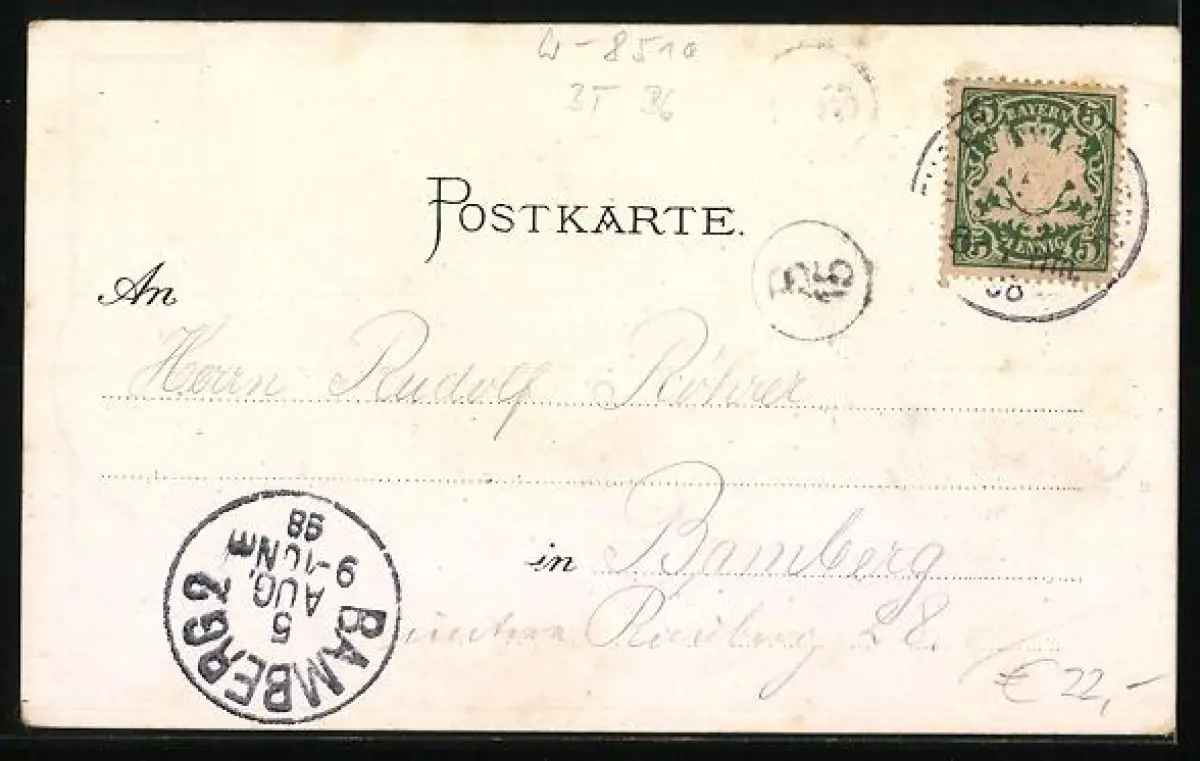 W-8510
BT B6
5 BAYERN 5
5 PFENNIG 5
POSTKARTE.
An
Herrn Rudolf Röhrer
in Bamberg
untere
28.
BAMBERG 2
5
AUG.
9-10 Nm
98
€ 22,-